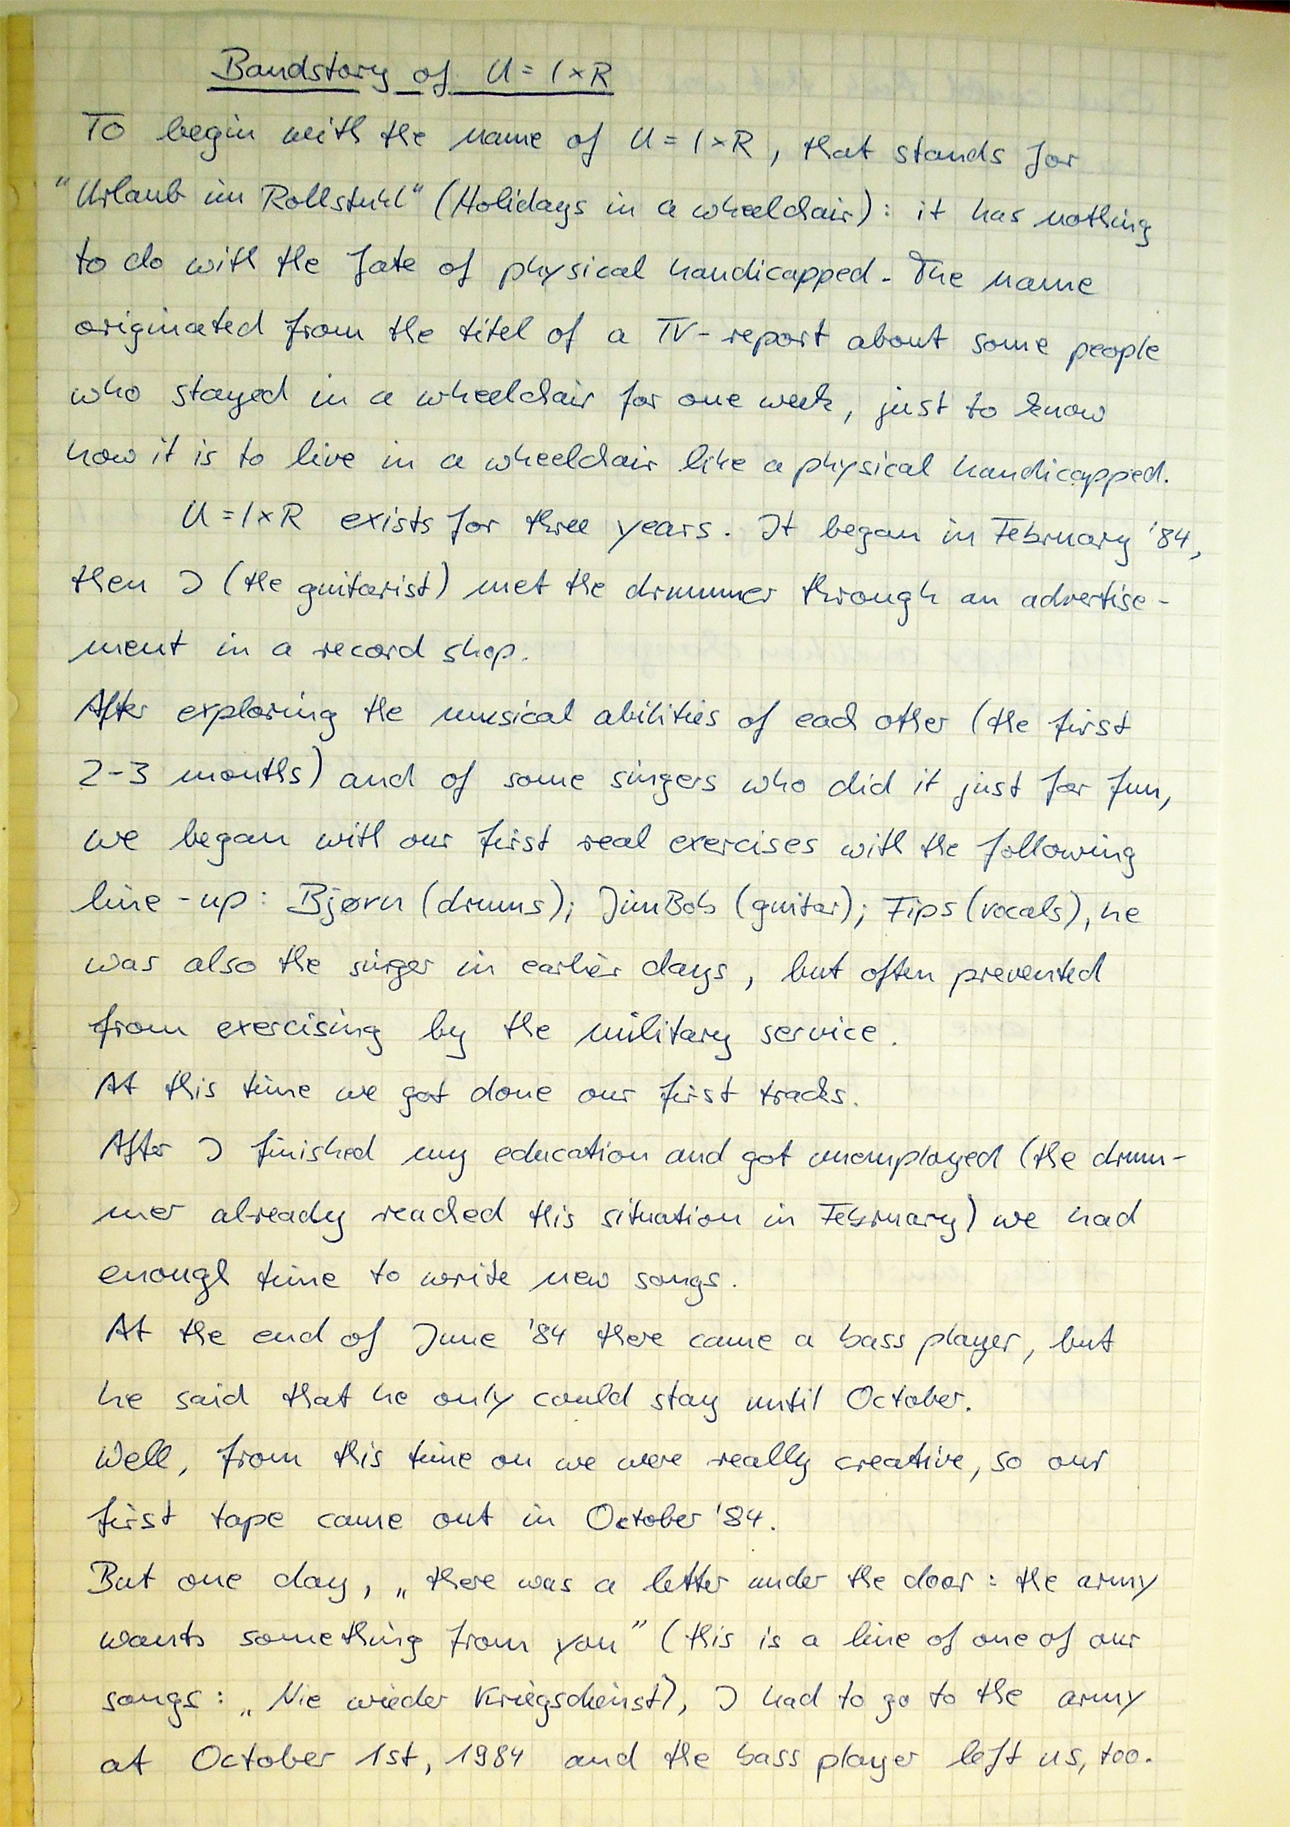 Bandstory of U=I×R
To begin with the name of U=I×R, that stands for
"Urlaub im Rollstuhl" (Holidays in a wheelchair): it has nothing
to do with the fate of physical handicapped. The name
originated from the titel of a TV-report about some people
who stayed in a wheelchair for one week, just to know
how it is to live in a wheelchair like a physical handicapped.
U=I×R exists for three years. It began in February '84,
then I (the guitarist) met the drummer through an advertise-
ment in a record shop.
After exploring the musical abilities of each other (the first
2-3 months) and of some singers who did it just for fun,
we began with our first real exercises with the following
line-up: Bjørn (drums); JimBob (guitar); Fips (vocals), he
was also the singer in earlier days, but often prevented
from exercising by the military service.
At this time we got done our first tracks.
After I finished my education and got unemployed (the drum-
mer already reached this situation in February) we had
enough time to write new songs.
At the end of June '84 there came a bass player, but
he said that he only could stay until October.
Well, from this time on we were really creative, so our
first tape came out in October '84.
But one day, „there was a letter under the door: the army
wants something from you" (this is a line of one of our
songs: „Nie wieder Kriegsdienst), I had to go to the army
at October 1st, 1984 and the bass player left us, too.